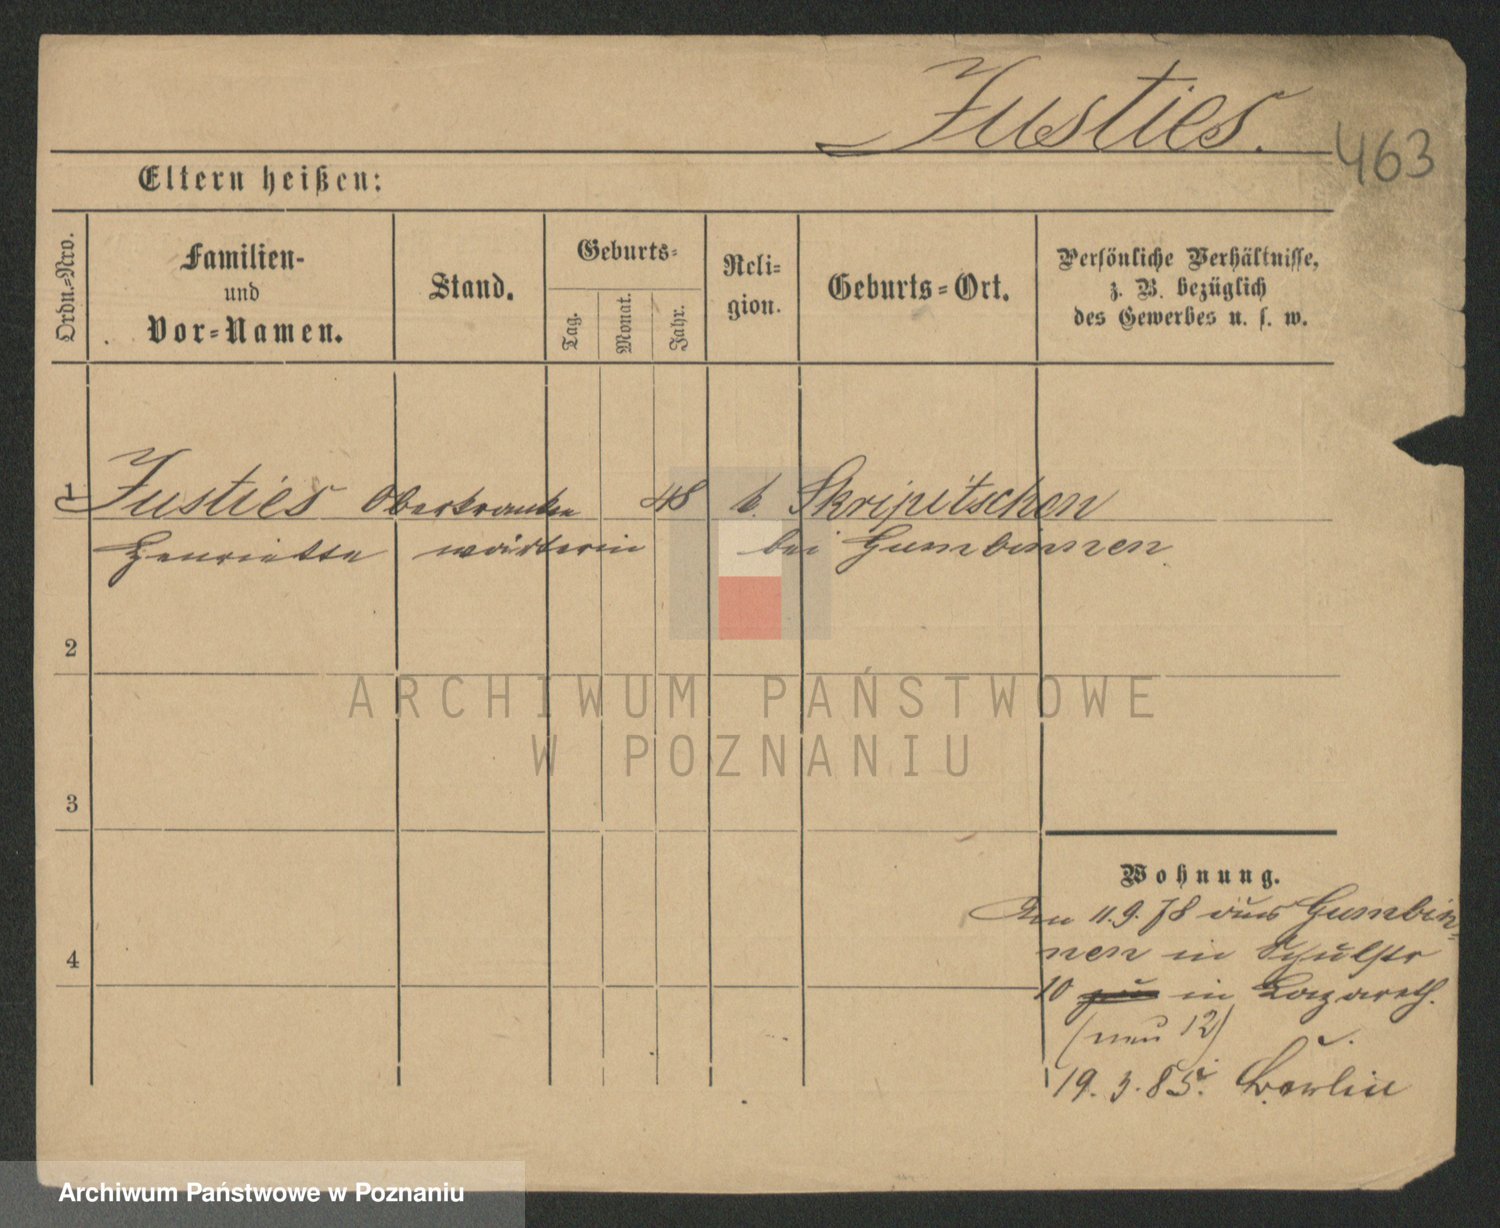 Justies.
463
Eltern heißen:
Ordn.-Nro.
Familien-
und
Vor-Namen.
Stand.
Geburts-
Tag.
Monat.
Jahr.
Reli-
gion.
Geburts-Ort.
Persönliche Verhältnisse,
z. B. bezüglich
des Gewerbes u. s. w.
1 Justies Oberkranken 48 Skripitschen
Henriette wärterin bei Gumbinnen
2
3
4
Wohnung.
Am 11.9.78 aus Gumbin-
nen in Schulstr
10 in Lazareth.
(neu 12)
19.3.85. Berlin
ARCHIWUM PAŃSTWOWE
W POZNANIU
Archiwum Państwowe w Poznaniu